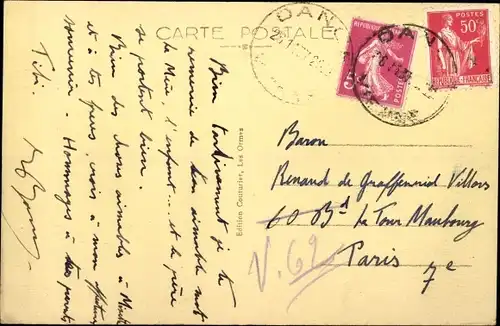 CARTE POSTALE
DAN
DAN
POSTES
50c
REPUBLIQUE FRANÇAISE
POSTES
Bien tardivement je te
remercie de ton aimable mot
la Mère, l'enfant... et le père
se portent bien.
Bien des choses aimables à
et à tes frères, crois à mon affectueux
souvenir. Hommages à tes parents
Edition Couturier, Les Ormes
Baron
Renaud de Graffenried Villars
60 Bd La Tour Maubourg
Paris 7e
V.69